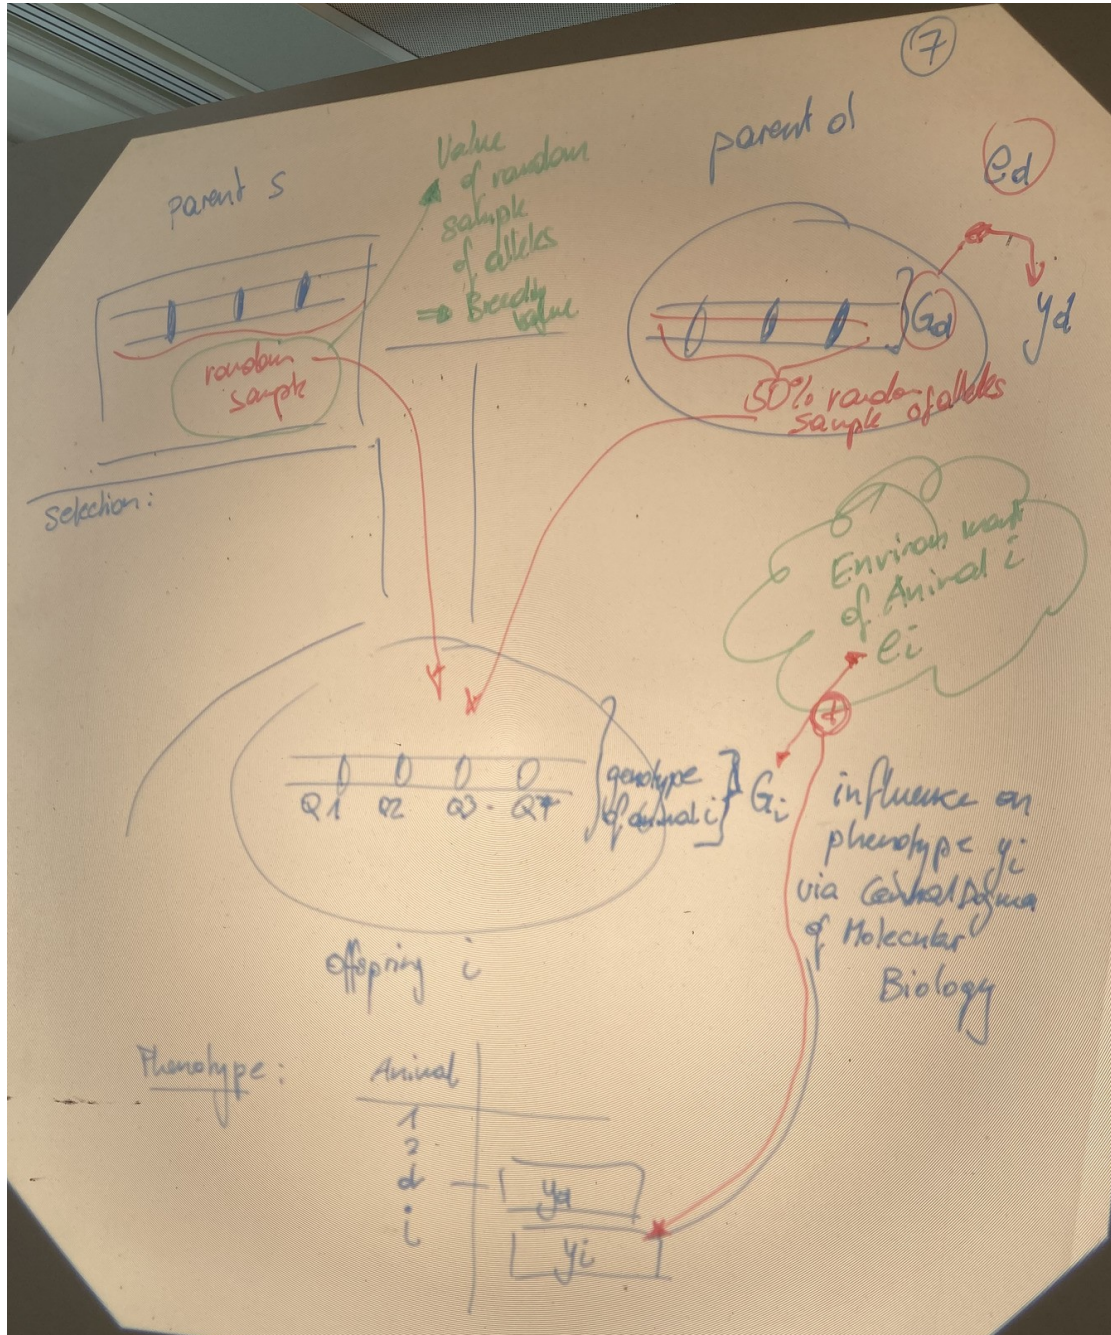 7
parent s
Value
of random
sample
of alleles
⇒ Breeding
value
parent d
ed
Gd
yd
random
sample
50% random
sample of alleles
Selection:
Environment
of Animal i
ei
+
Q1 Q2 Q3 - Q7
genotype
of animal i
Gi
influence on
phenotype yi
via Central Dogma
of Molecular
Biology
Offspring i
Phenotype:
Animal
1
2
d
yd
i
yi